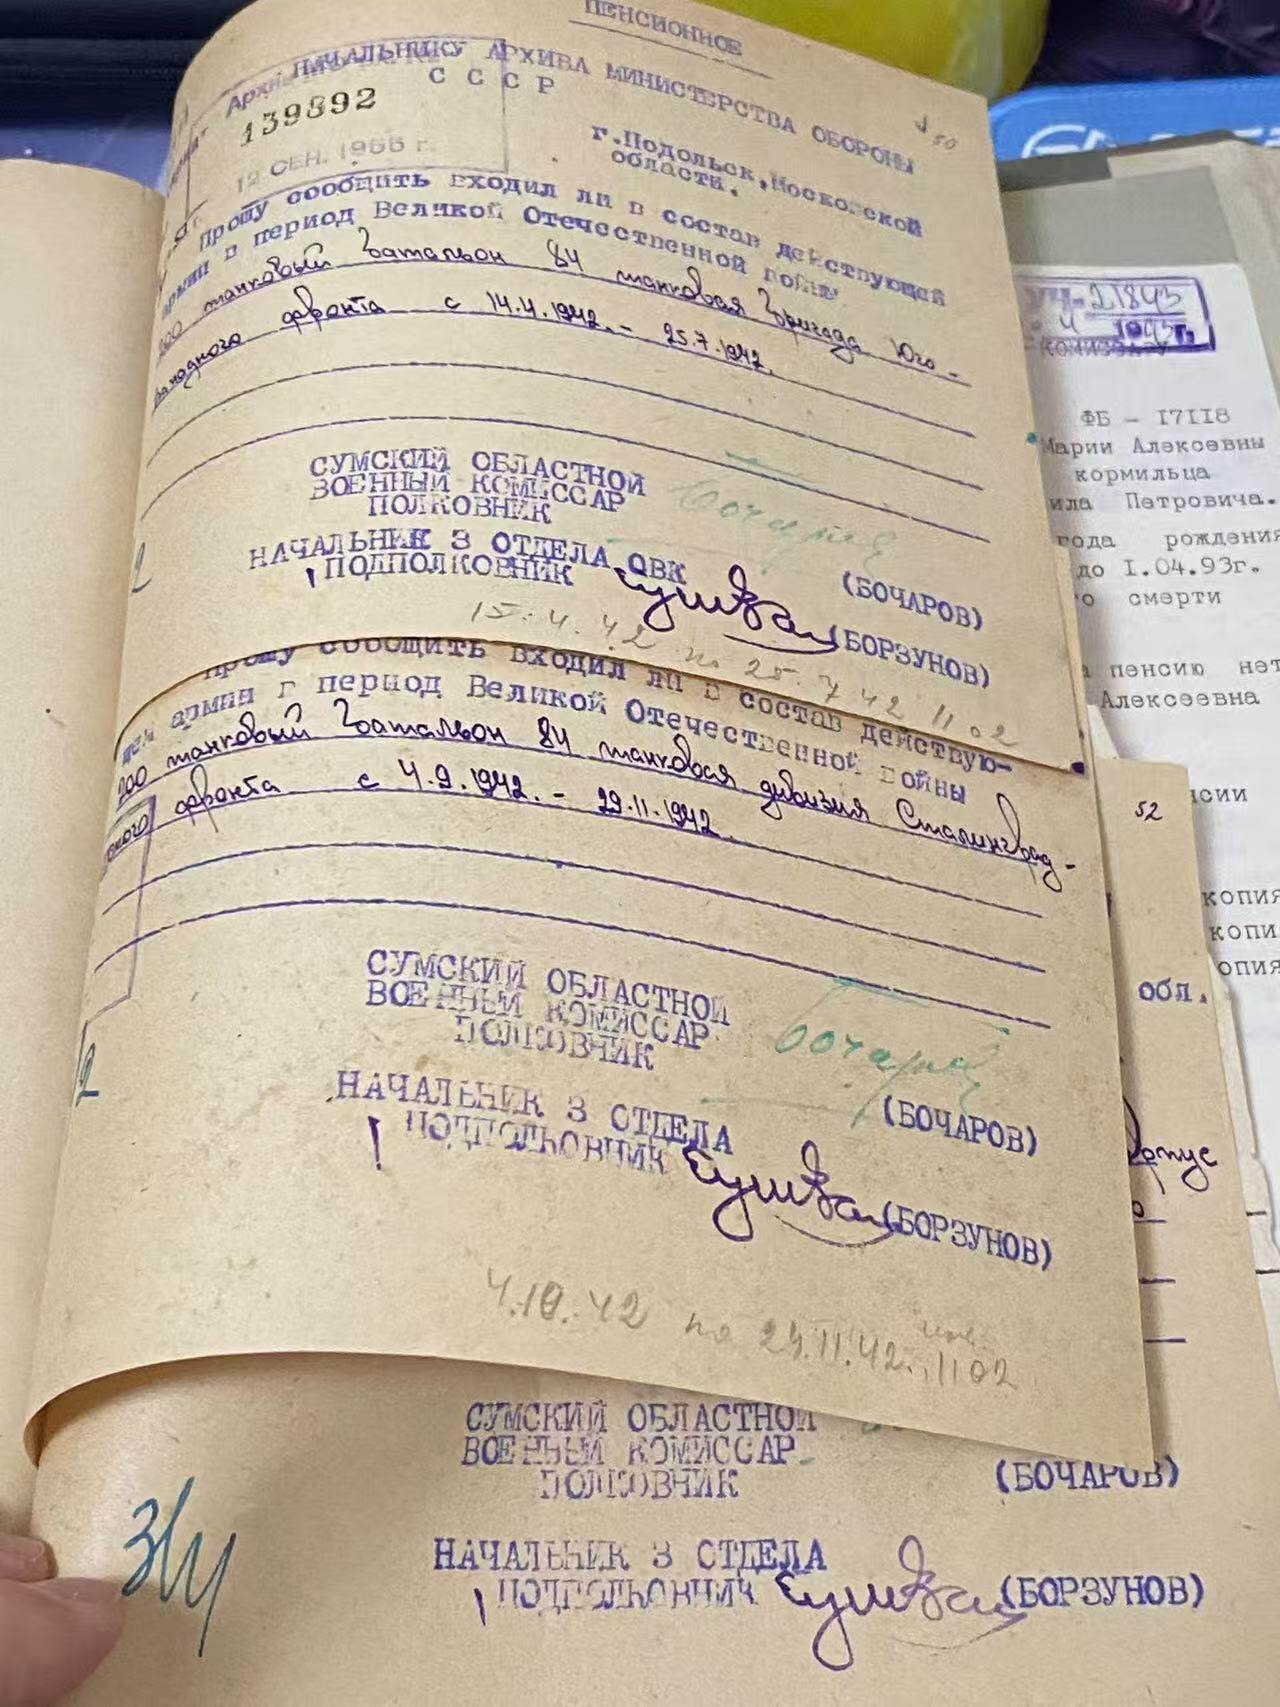 ПЕНСИОННОЕ
НАЧАЛЬНИКУ АРХИВА МИНИСТЕРСТВА ОБОРОНЫ
СССР
139892
12 СЕН. 1966 г.
50
г.Подольск,Московской
области.
Прошу сообщить входил ли в состав действующей
армии в период Великой Отечественной войны
200 танковый батальон 84 танковая бригада Юго-
западного фронта с 14.4.1942. - 25.7.1942.
СУМСКИЙ ОБЛАСТНОЙ
ВОЕННЫЙ КОМИССАР
ПОЛКОВНИК
(БОЧАРОВ)
НАЧАЛЬНИК 3 ОТДЕЛА ОВК
ПОДПОЛКОВНИК
(БОРЗУНОВ)
15.4.42 по 25.7.42 1102
Прошу сообщить входил ли в состав действую-
щей армии в период Великой Отечественной войны
200 танковый батальон 84 танковая дивизия Сталинград-
ского фронта с 4.9.1942. - 29.11.1942.
СУМСКИЙ ОБЛАСТНОЙ
ВОЕННЫЙ КОМИССАР
ПОЛКОВНИК
(БОЧАРОВ)
НАЧАЛЬНИК 3 ОТДЕЛА
ПОДПОЛКОВНИК
(БОРЗУНОВ)
4.10.42 по 29.11.42. 1102
СУМСКИЙ ОБЛАСТНОЙ
ВОЕННЫЙ КОМИССАР
ПОЛКОВНИК
(БОЧАРОВ)
НАЧАЛЬНИК 3 ОТДЕЛА
ПОДПОЛКОВНИК
(БОРЗУНОВ)
21843
1993г.
ФБ - 17118
Марии Алексевны
кормильца
ила Петровича.
года рождения
до 1.04.93г.
смерти
пенсию нет
Алексеевна
нсии
52
копия
копи
опия
обл.
орпус